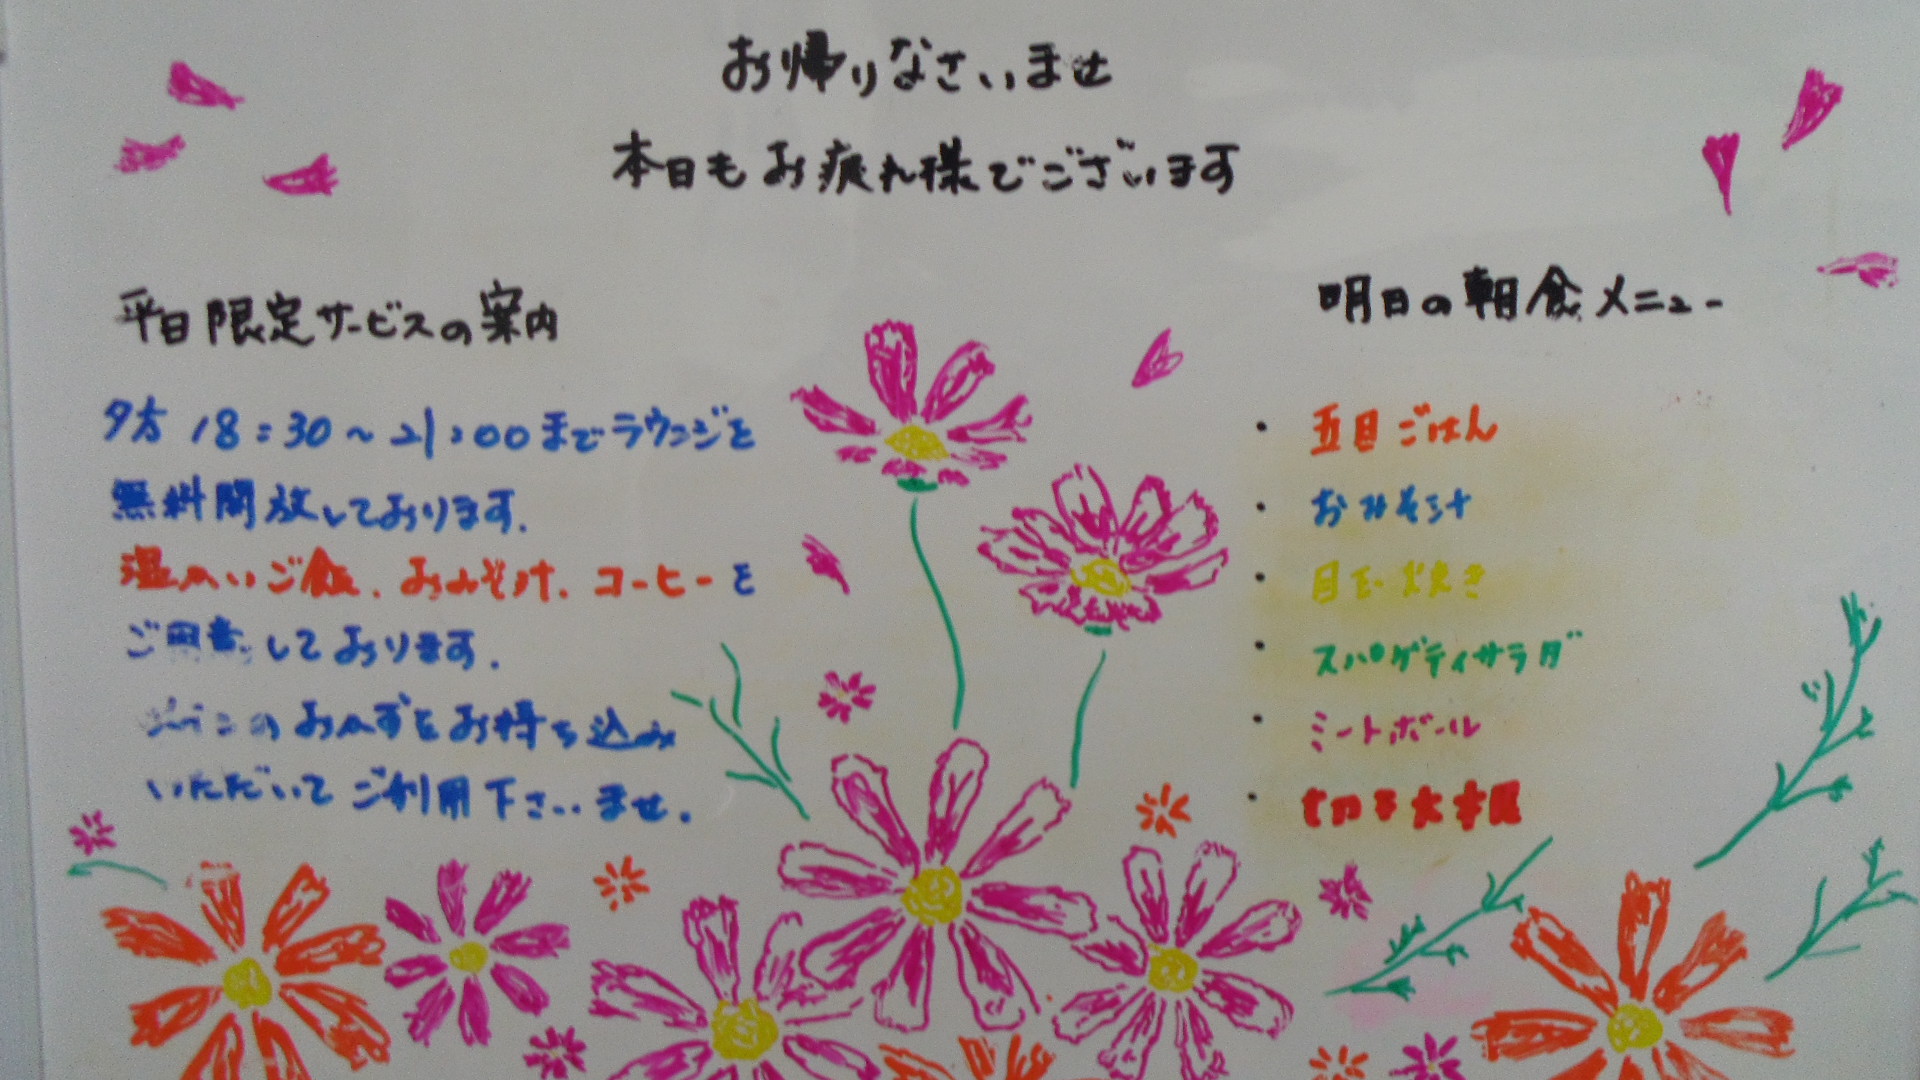 お帰りなさいませ
本日もお疲れ様でございます
平日限定サービスの案内
夕方 18:30～21:00までラウンジを
無料開放しております.
温かいご飯、おみそ汁、コーヒーを
ご用意しております.
のおかずをお持ち込み
いただいてご利用下さいませ.
明日の朝食メニュー
・五目ごはん
・おみそ汁
・目玉焼き
・スパゲティサラダ
・ミートボール
・切干大根